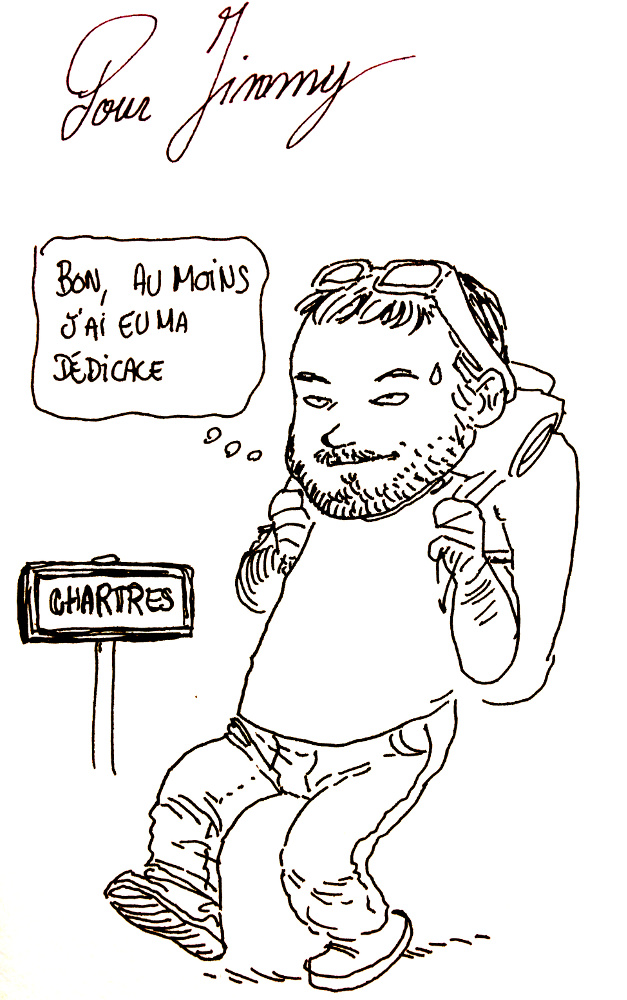 Pour Jimmy
BON, AU MOINS
J'AI EU MA
DÉDICACE
CHARTRES